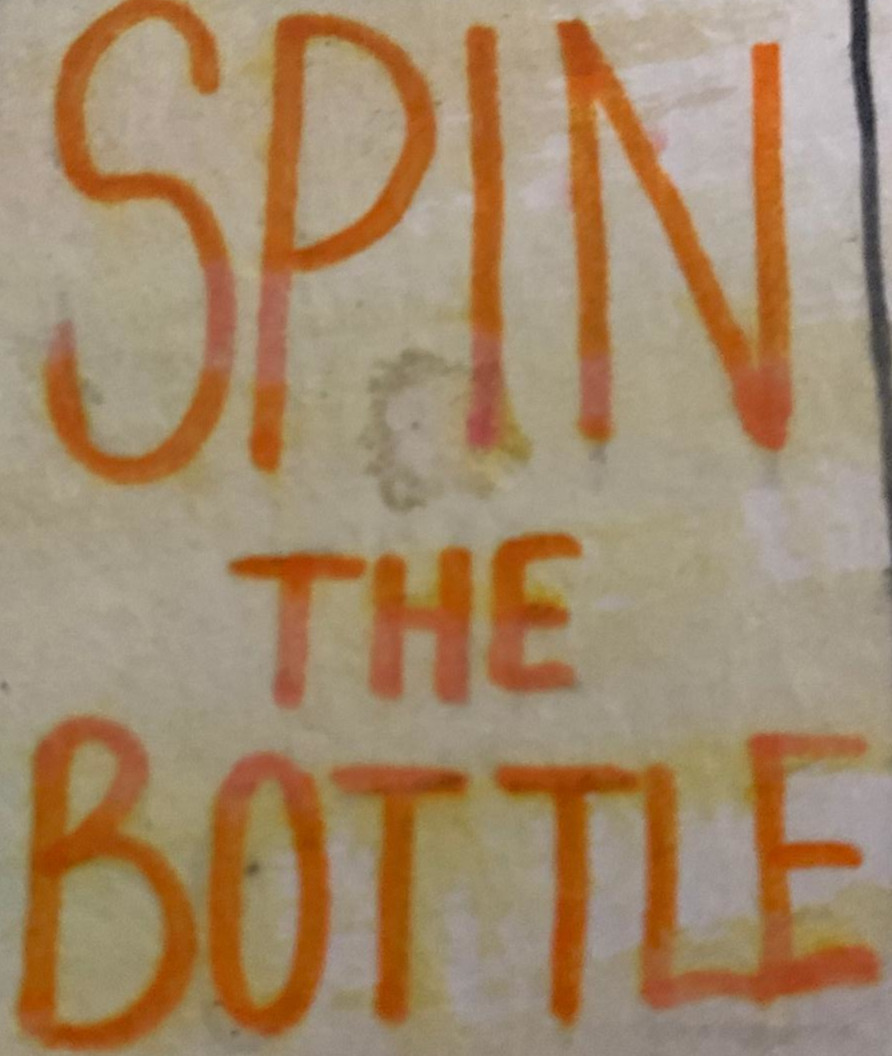 SPIN
THE
BOTTLE